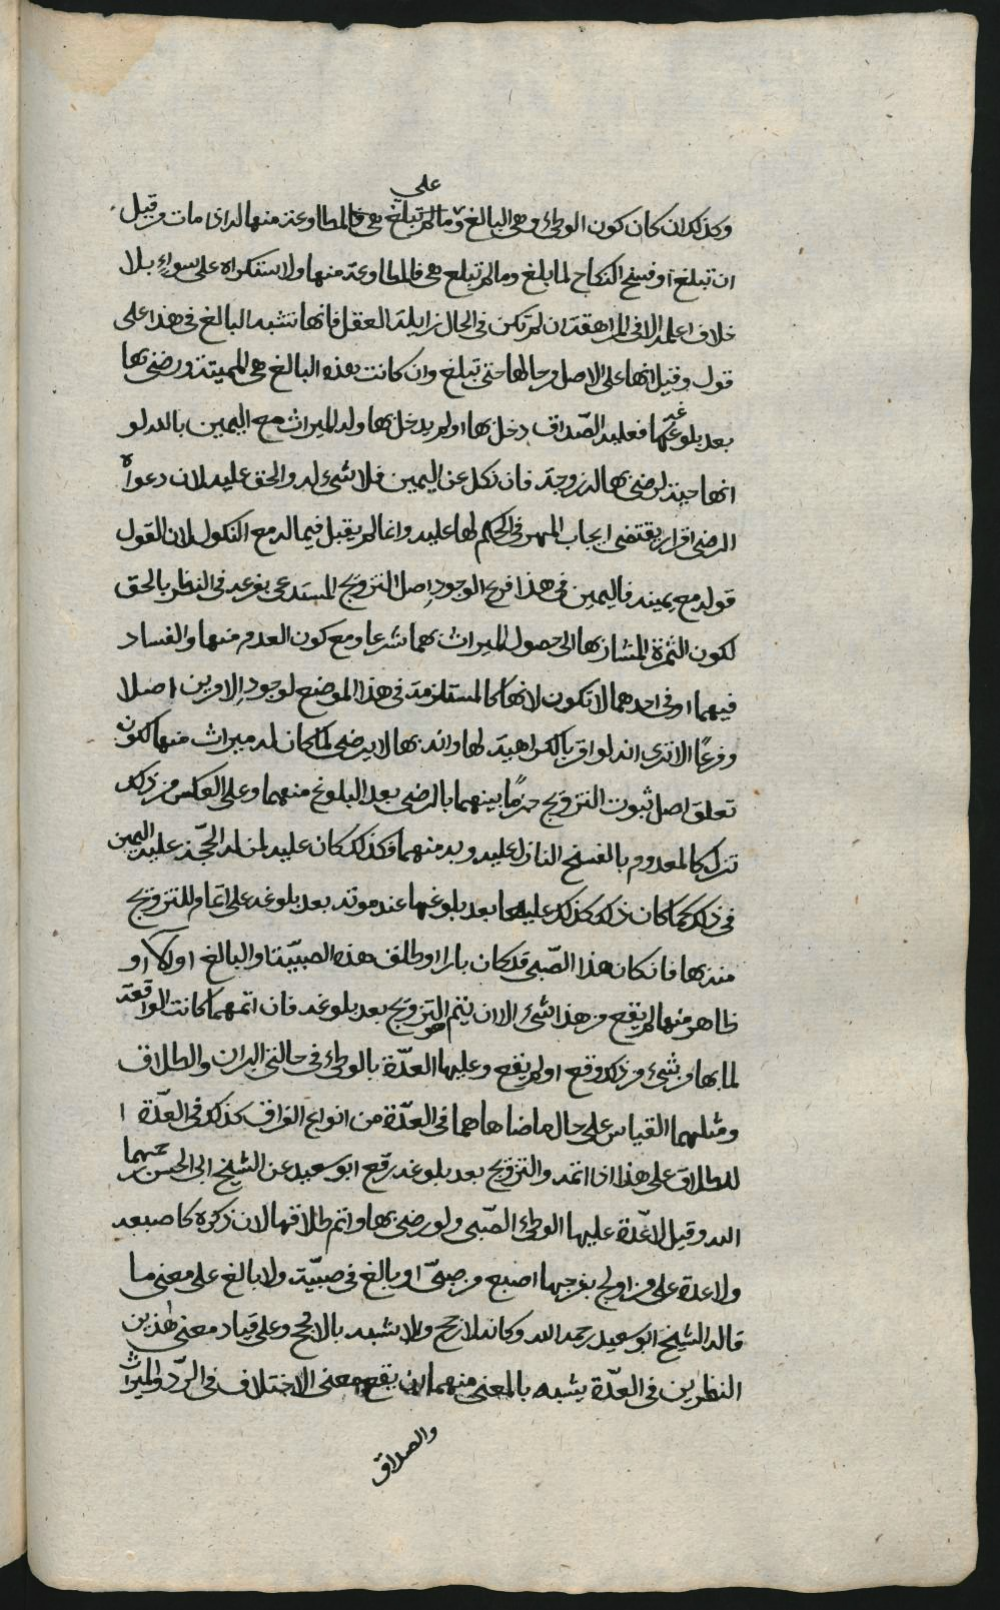 على
وكذلك ان كان كون الوطئ وهى البالغ وما لم تبلغ هى فالمطاوعة منها له اذا مات من قبل
ان تبلغ او فسخ النكاح لما بلغ وما لم تبلغ هى فالمطاوعة منها والاستكراه على سواء بلا
خلاف اعلمه الا فى المراهقة ان لم تكن فى الحال زايلة العقل فانها تشبه البالغ فى هذا على
قول وقيل انها على الاصل من حالها حتى تبلغ وان كانت هذه البالغ هى الميتة ورضى بها
بعد بلوغه فعليه الصّداق دخل بها او لم يدخل بها وله الميراث مع اليمين بالله لو
انها حية لرضى بها له زوجة فان نكل عن اليمين فلا شىء له والحق عليه لان دعواه
الرضى اقرار يقتضى ايجاب المهر فى الحكم لها عليه وانما لم يقبل فيما له مع النكول لان القول
قوله مع يمينه فاليمين فى هذا فرع لوجود اصل التزويج المستدعى بفرعه فى النظر بالحق
لكون الثمرة المشار بها الى حصول الميراث بهما شرعا ومع كون العدم منها والفساد
فيهما او فى احدهما لا تكون لانها كالمستلزمة فى هذا الموضع لوجود الامرين اصلا
وفرعًا الا ترى انه لو اقر بالكراهية لها وانه بها لا يرضى لما كان له ميراث منها لكون
تعلق اصل ثبوت التزويج جزمًا بينهما بالرضى بعد البلوغ منهما وعلى العكس من ذلك
تركه كالمعدوم بالفسخ النازل عليه وبه منهما فكذلك كان عليه لمن له الحجّة عليه اليمين
فى ذلك كما كان ذلك كذلك عليها بعد بلوغها عند موته بعد بلوغه على اتمام للتزويج
منه بها فان كان هذا الصّبى قد كان بارا او طلق هذه الصبيّة او البالغ او لا او
ظاهر منها لم يقع من هذا شىء الا ان يتم هو التزويج بعد بلوغه فان اتمه كانت الواقعة
لما بها من شىء من ذلك وقع او لم يقع وعليها العدّة بالوطئ فى حالتى البران والطلاق
ومثلهما القياس على حال ما ضاهاهما فى العدّة من انواع الفراق كذلك فى العدّة ا
للطلاق على هذا اذا اتمه والتزويج بعد بلوغه رفع ابو سعيد عن الشيخ ابى الحسن رحمهما
الله وقيل لا عدّة عليها الوطئ الصّبى ولو رضى بها واتم طلاقها لان ذكره كاصبعه
ولا عدة على من اولج بفرجها اصبع من صبىّ او بالغ فى صبيّة ولا بالغ على معنى ما
قاله الشيخ ابو سعيد رحمه الله وكانه لا يرجح ولا يشبه بالارجح وعلى قياد معنى هذين
النظرين فى العدّة يشبه بالمعنى منهما ان يقع معنى الاختلاف فى الردّ والميراث
والصداق